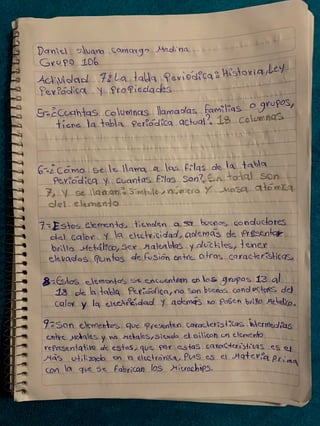 Daniel Alvaro Camargo Medina
Grupo 106
Actividad 7: La tabla Periódica: Historia, Ley
Periódica y Propiedades
5=¿Cuantas columnas llamadas familias o grupos,
tiene la tabla periódica actual? 18 columnas
6=¿Cómo se le llama a las filas de la tabla
Periódica y cuantas filas son? En total son
7, y se llaman: Símbolo, número y masa atómica
del elemento
7=Estos elementos tienden a ser buenos conductores
del calor y la electricidad, además de Presentar
brillo Metálico, ser Maleables y dúctiles, tener
elevados puntos de fusión entre otras características.
8=Estos elementos se encuentran en los grupos 13 al
18 de la tabla Periódica, no son buenos conductores del
calor y la electricidad y además no Posen brillo Metálico.
9=Son elementos que Presentan características intermedias
entre Metales y no Metales, siendo el silicon un elemento
representativo de estos, que por estas características es el
Más utilizado en la electrónica, Pues es el Materia Prima
con la que se fabrican los Microchips.